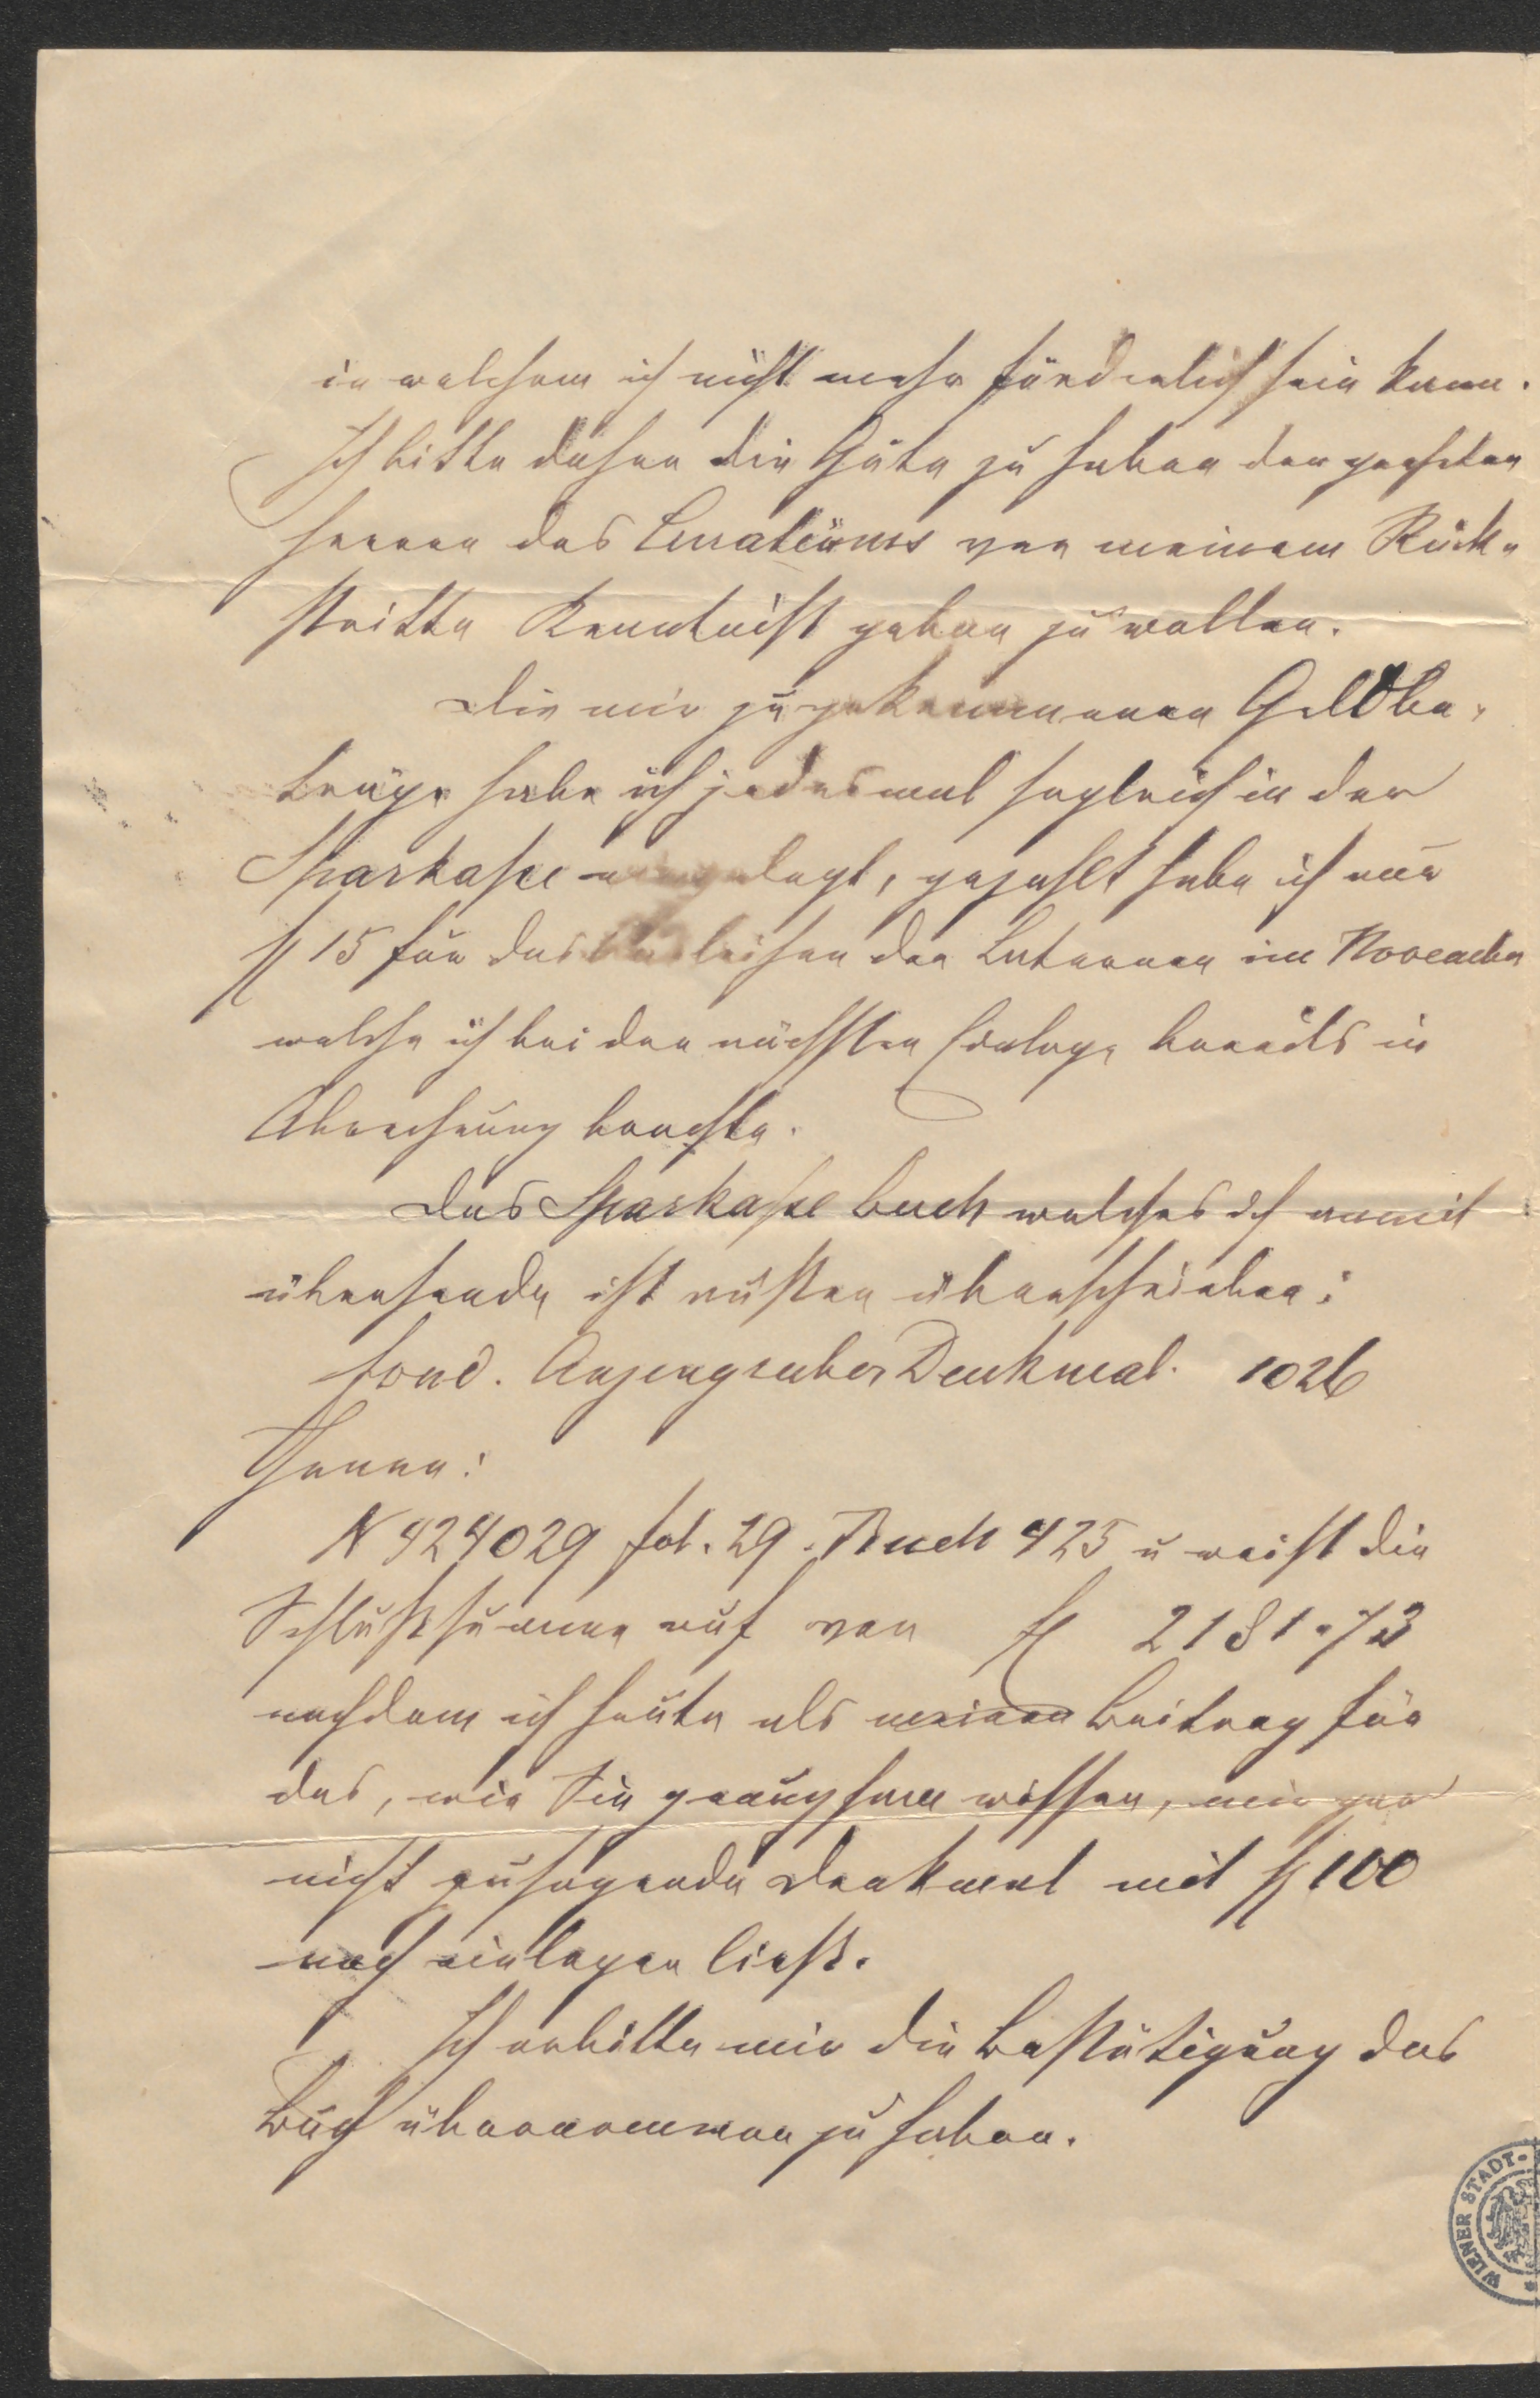 in welchem ich nicht mehr förderlich sein kann.
Ich bitte daher die Güte zu haben den geehrten
Herren des Curatoriums von meinem Rück-
tritte Kenntniß geben zu wollen.
Die mir zugekommenen Geldbe-
träge habe ich jedesmal sogleich in der
Sparkasse angelegt, gezahlt habe ich nur
fl 15 für das Ausleihen der Laternen im November
welche ich bei der nächsten Einlage bereits in
Abrechnung brachte.
Das Sparkasse Buch welches ich anmit
übersende ist außen überschrieben:
Fond. Anzengruber Denkmal. 1026
Innen:
N 424029 fol. 29. Buch 425 u weist die
Schlußsumme auf von fl 2181.73
nachdem ich heute als meinen Beitrag für
das, wie Sie genugsam wissen, mir gar
nicht zusagende Denkmal mit fl 100
noch einlegen ließ.
Ich erbitte mir die Bestätigung das
Buch übernommen zu haben.
WIENER STADT-